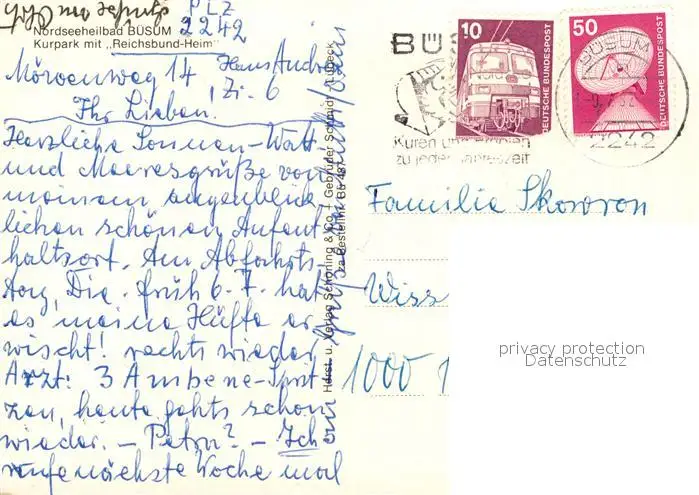 PLZ
2242
Nordseeheilbad BÜSUM
Kurpark mit „Reichsbund-Heim"
Möwenweg 14 Haus Andrea
Zi. 6
Ihr Lieben.
Herzliche Sonnen-Watt-
und Meeresgrüße von
meinem augenblick
lichen schönen Aufent
haltsort. Am Abfahrts-
tag, Die. früh 6.7. hat
es meine Hüfte er
wischt! rechts wieder
Arzt: 3 Ambene-Sprit
zen, heute gehts schon
wieder. – Petra? – Ich
rufe nächste Woche mal
Horst u. Verlag Schöning & Co + Gebrüder Schmidt, Lübeck
Bestellnr. Bü 487
BÜS
Kuren und
zu jeder Jahreszeit
10
DEUTSCHE BUNDESPOST
50
DEUTSCHE BUNDESPOST
BÜSUM
2242
Familie Skowron
Wiss
1000 1
privacy protection
Datenschutz